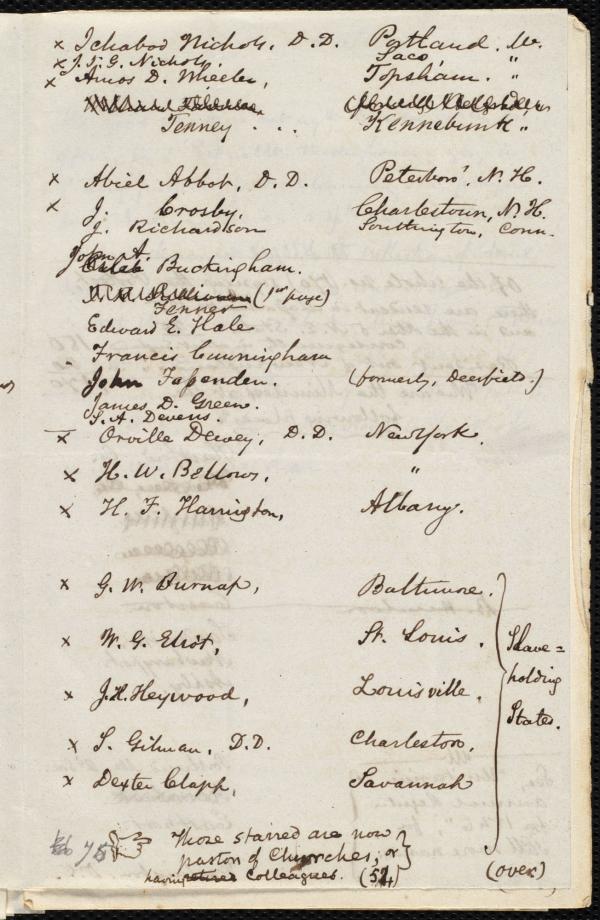 x Ichabod Nichols, D.D. Portland, Me.
x J. G. Nichols. Saco, "
x Amos D. Wheeler, Topsham. "
Tenney . . . Kennebunk "
x Abiel Abbot, D.D. Peterboro', N.H.
x J. Crosby, Charlestown, N.H.
J. Richardson Southington, Conn.
John A. Buckingham.
Tenner (1st page)
Edward E. Hale
Francis Cunningham
John Fessenden. (formerly, Deerfield.)
James D. Green.
S. A. Devens.
x Orville Dewey, D.D. New York.
x H. W. Bellows, "
x H. F. Harrington, Albany.
x G. W. Burnap, Baltimore.
x W. G. Eliot, St. Louis.
x J. H. Heywood, Louisville.
x S. Gilman, D.D. Charleston.
x Dexter Clapp, Savannah
Slave=
holding
States.
75 Those starred are now
pastors of Churches, or
having colleagues. (54)
(over)